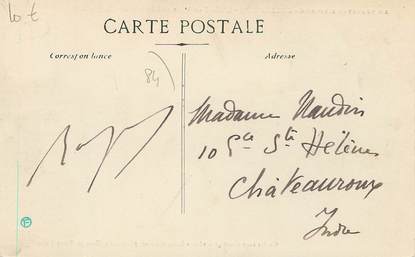 lot
CARTE POSTALE
Correspondance
Adresse
84
Madame Naudin
10 Pce Ste Hélène
Châteauroux
Indre